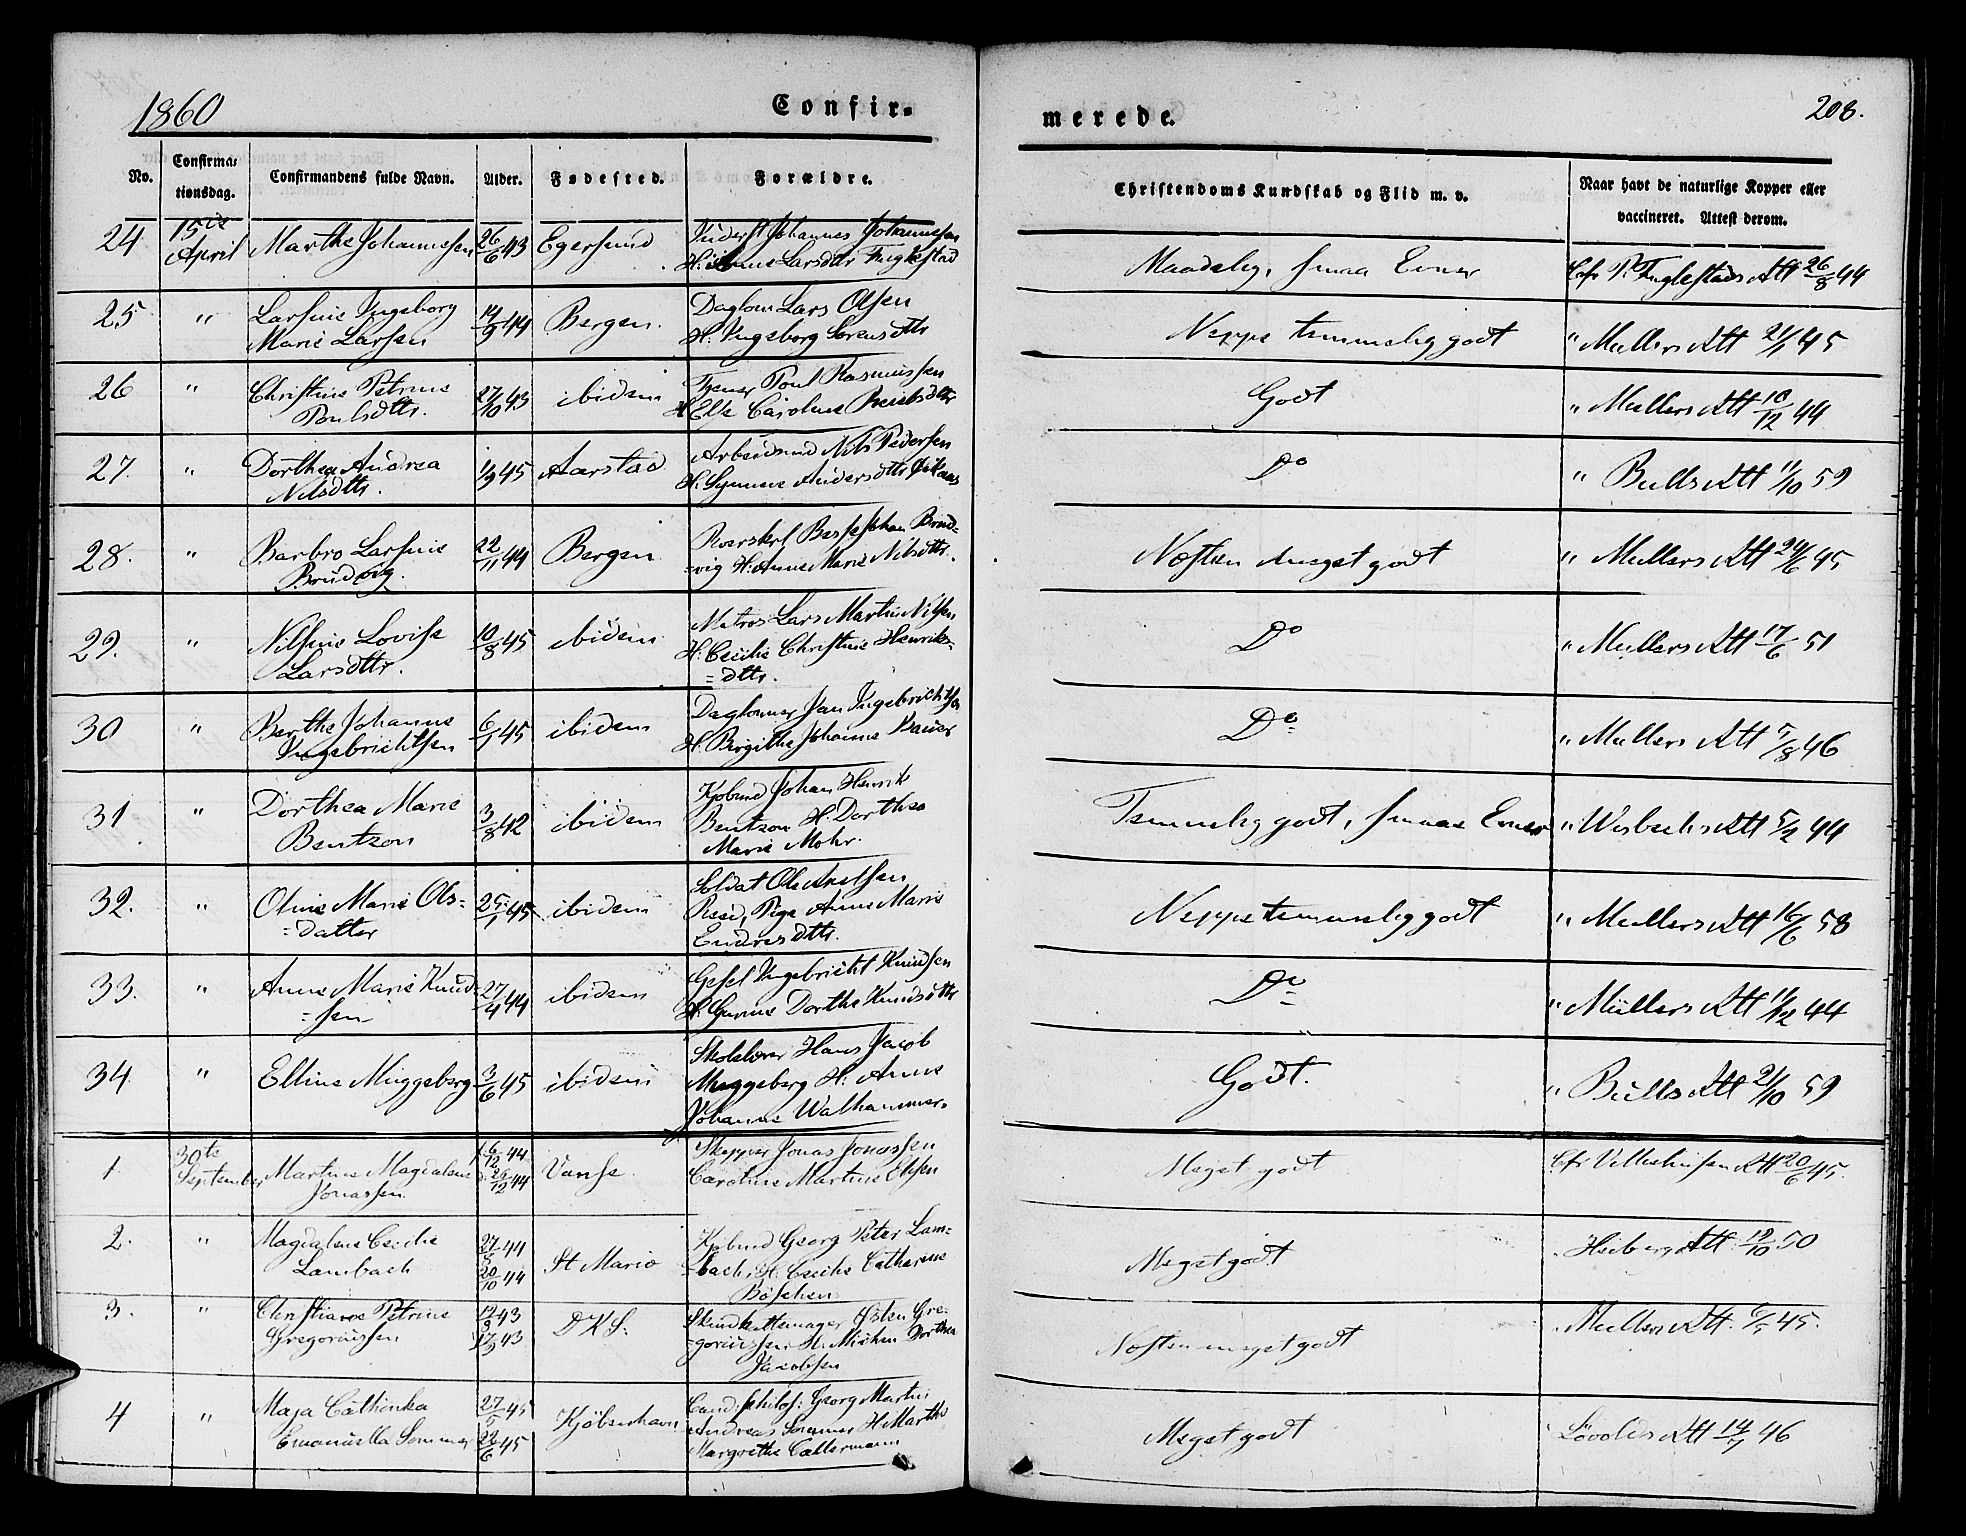 1860
Confir-
merede.
208.
No.
Confirma-
tionsdag.
Confirmandens fulde Navn.
Alder.
Fødested.
Forældre.
Christendoms Kundskab og Flid m. v.
Naar havt de naturlige Kopper eller
vaccineret. Attest derom.
24 15de April Marthe Johannessen 26/6 43 Egersund Johannes Johannessen
H. Larsdttr Fuglestad
Maadelig, smaa Evner
Fuglestads Att 26/8 44
25 " Larsine Ingeborg
Marie Larsen
14/9 44 Bergen. Daglon: Lars Olsen
H. Ingeborg Sørensdttr
Neppe temmelig godt
" Mullers Att 21/1 45
26 " Christine Petrine
Poulsdttr.
27/10 43 ibidem Poul Rasmussen
H. Else Caroline
Godt
" Mullers Att 10/12 44
27. " Dorthea Andrea
Nilsdttr.
1/9 45 Aarstad Arbeidsmd Nils Pedersen
H. Synneve Andersdttr
Do
" Bulls Att 11/10 59
28. " Barbro Larsine
Brudvig.
22/11 44 Bergen Johan Brud=
=vig H. Anne Marie Nilsdttr.
Næsten Meget godt
" Mullers Att 24/6 45
29. " Nilsine Lovise
Larsdttr.
10/8 45 ibidem Matros Lars Martin Nilsen
H. Cecilie Christine Henriks=
=dttr.
Do
" Mullers Att 17/6 51
30 " Berthe Johanne
Ingebrichtsen
6/1 45 ibidem Daglonner Jan Ingebrichtsen
H. Birgithe Johanne
Do
" Mullers Att 5/8 46
31 " Dorthea Marie
Bentzon
3/8 42 ibidem Kjøbmd Johan Henrik
Bentzon H. Dorthea
Marie Mohr.
Temmelig godt, smaa Evner
" Att 5/2 44
32. " Oline Marie Ols=
=datter
25/1 45 ibidem Soldat Ole
Pige Anne Marie
Endresdttr.
Neppe temmelig godt
" Mullers Att 16/6 58
33. " Anne Marie Knud=
=sen
27/4 44 ibidem Gesel Ingebricht Knudsen
H. Gurine Dorthe Knudsdttr
Do
" Müllers Att 11/12 44
34 " Elline Müggeberg 3/6 45 ibidem Skolelærer Hans Jacob
Muggeberg H. Anne
Johanne Walhammer.
Godt.
" Bulls Att 21/10 59
1. 30te September Martine Magdalene
Jonassen
6/12 44
26/12 44
Vanse Skipper Jonas Jonassen
Caroline Martine Ebsen
Meget godt
Att 20/6 45.
2. " Magdalene Cecilie
Lambach
27/8 44
20/10 44
St Marie Kjøbmd Georg Peter Lam=
=bach, H. Cecilie Catharine
Böschen
Meget godt
Heiberg Att 12/10 50
3. " Petrine
Gregoriussen
12/3 43
17/9 43
DKS. Gre=
=goriussen H.
Jacobsen
Næsten meget godt
Mullers Att. 6/5 45.
4 " Maja Cathinka
Emanuella Sommer
27/5 45
22/6 45
Kjöbenhavn Cand: philos: Georg Martin
Andreas Sommer H. Marthe
Margrethe
Meget godt
Att 14/7 46